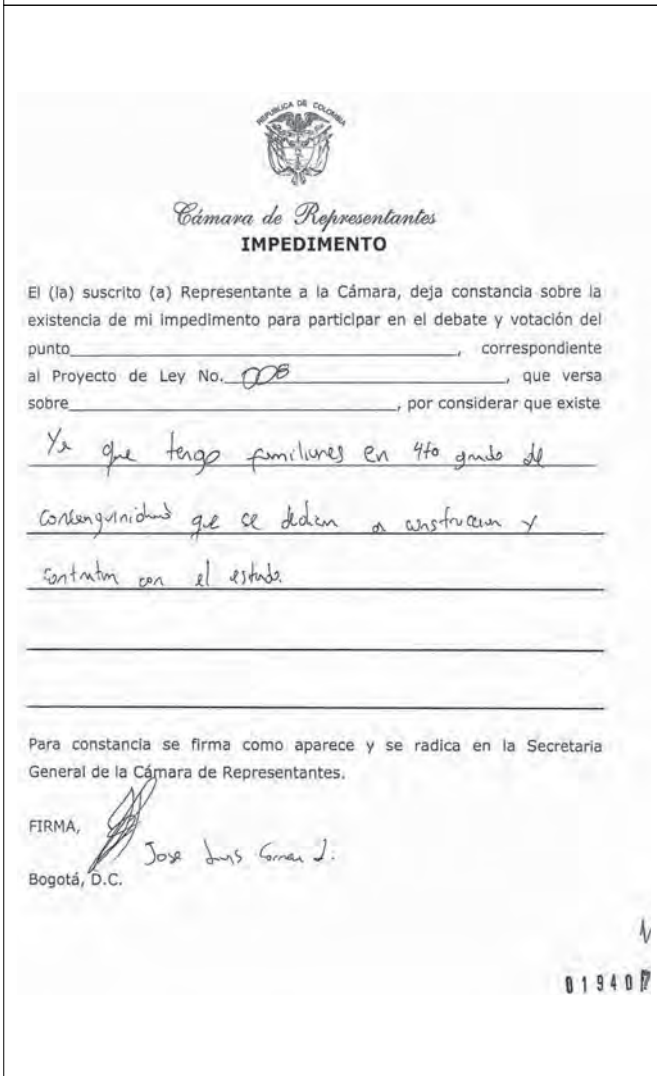 REPUBLICA DE COLOMBIA
Cámara de Representantes
IMPEDIMENTO
El (la) suscrito (a) Representante a la Cámara, deja constancia sobre la
existencia de mi impedimento para participar en el debate y votación del
punto , correspondiente
al Proyecto de Ley No. 008 , que versa
sobre , por considerar que existe
Ya que tengo familiares en 4to grado de
que se dedican a construccion y
contratan con el estado.
Para constancia se firma como aparece y se radica en la Secretaria
General de la Cámara de Representantes.
FIRMA,
Jose Luis
Bogotá, D.C.
01940